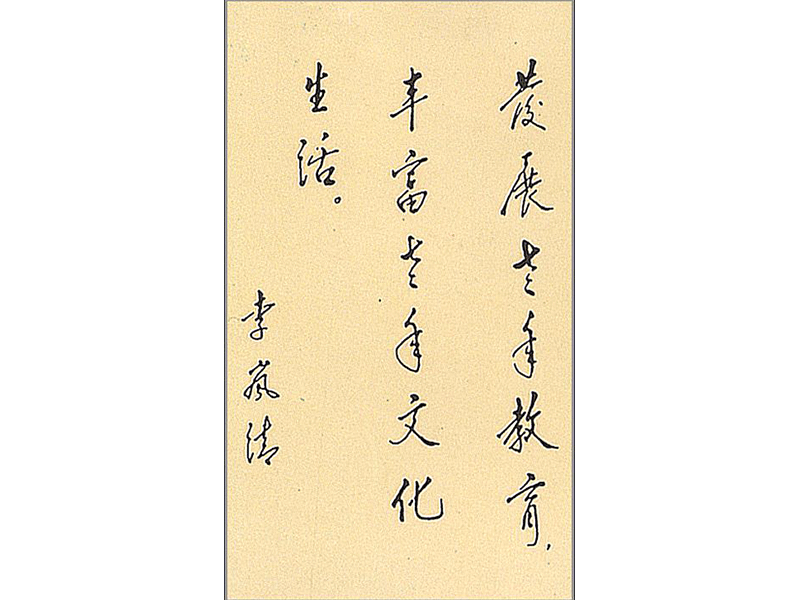 發展老年教育，
丰富老年文化
生活。
李岚清